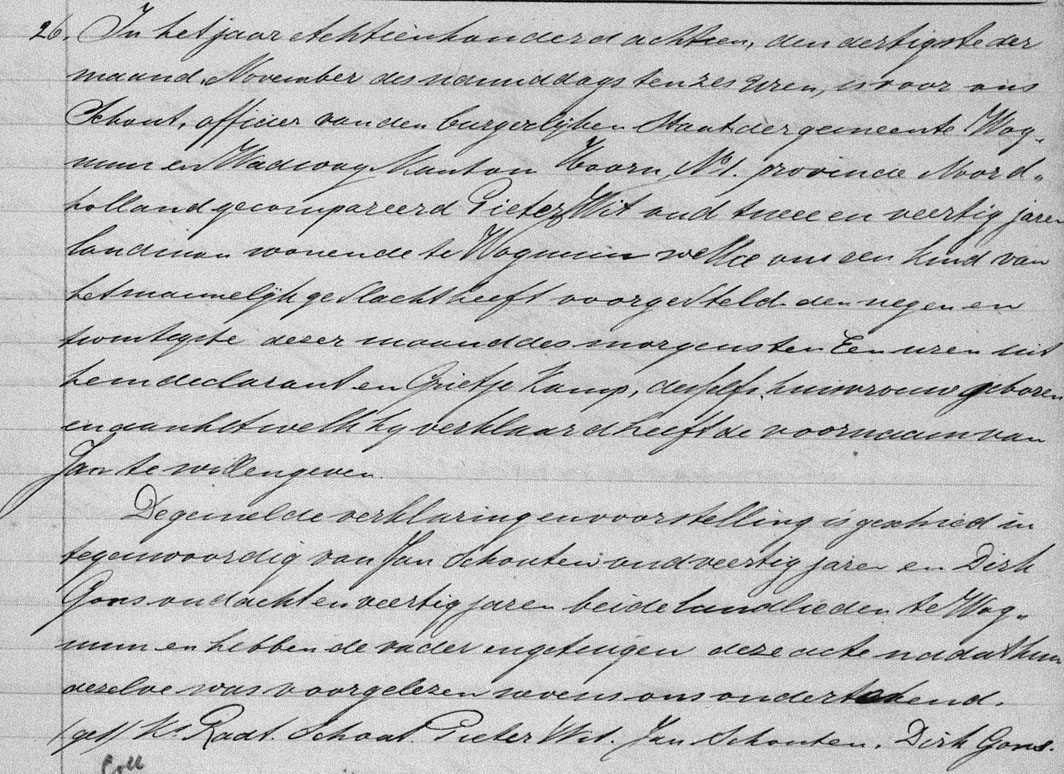 26. In het jaar Achttienhonderd achttien, den dertigste der
maand November des namiddags ten zes uren, is voor ons
Schout, officier van den burgerlijken Staat der gemeente Wog-
num en Wadway Kanton Hoorn, provincie Noord-
holland gecompareerd Pieter Wit oud twee en veertig jaren
landman wonende te Wognum welke ons een kind van
het mannelijk geslacht heeft voorgesteld den negen en
twintigste dezer maand des morgens ten Een uren uit
hem declarant en Grietje Kamp, deszelfs huisvrouw geboren
en aan hetwelk hy verklaard heeft de voornaam van
Jan te willen geven.
De gemelde verklaring en voorstelling is geschied in
tegenwoordig van Jan Schouten oud veertig jaren en Dirk
Gons oud acht en veertig jaren beide landlieden te Wog-
num en hebben de vader en getuigen deze acte nadat hun
dezelve was voorgelezen nevens ons ondertekend.
(get) Kl Raat. Schout. Pieter Wit. Jan Schouten. Dirk Gons.
Coll